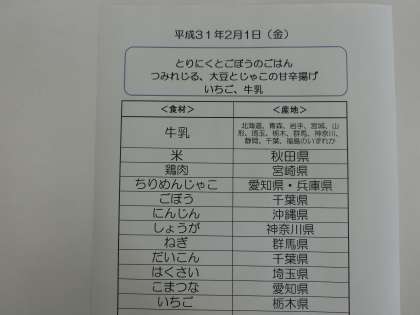 平成31年2月1日(金)
とりにくとごぼうのごはん
つみれじる、大豆とじゃこの甘辛揚げ
いちご、牛乳
<食材> <産地>
牛乳 北海道、青森、岩手、宮城、山
形、埼玉、栃木、群馬、神奈川、
静岡、千葉、福島のいずれか
米 秋田県
鶏肉 宮崎県
ちりめんじゃこ 愛知県・兵庫県
ごぼう 千葉県
にんじん 沖縄県
しょうが 神奈川県
ねぎ 群馬県
だいこん 千葉県
はくさい 埼玉県
こまつな 愛知県
いちご 栃木県